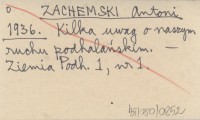 ZACHEMSKI Antoni
1936. Kilka uwag o naszym
ruchu podhalańskim. —
Ziemia Podh. 1, nr 1.